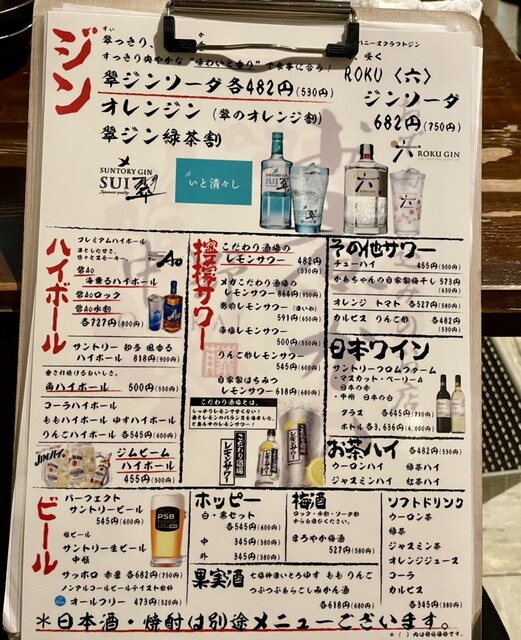 ジン
翠ジンソーダ 各482円(530円)
オレンジン(翠のオレンジ割)
翠ジン緑茶割
SUNTORY GIN
SUI 翠
いと清々し
ROKU〈六〉
ジンソーダ
682円(750円)
六 ROKU GIN
ハイボール
プレミアムハイボール
碧Ao
海薫るハイボール
碧Aoロック
碧Ao水割
各727円(800円)
サントリー 知多 風香る
ハイボール 818円(900円)
愛され続けるおいしさ。
角ハイボール 500円(550円)
コーラハイボール
ももハイボール ゆずハイボール
りんごハイボール 各545円(600円)
ジムビーム
ハイボール
455円(500円)
檸檬サワー
こだわり酒場の
レモンサワー 482円(530円)
メガこだわり酒場の
レモンサワー 864円(950円)
591円(650円)
500円(550円)
りんご酢レモンサワー
545円(600円)
自家製はちみつ
レモンサワー 618円(680円)
こだわり酒場とは、
こだわり酒場の
レモンサワー
その他サワー
チューハイ 455円(500円)
かあちゃんの自家製梅干し 573円(630円)
オレンジ トマト 各527円(580円)
カルピス りんご酢 各482円(530円)
日本ワイン
サントリーフロムファーム
・マスカット・ベーリーA
日本の赤
・甲州 日本の白
グラス 各645円(710円)
ボトル 各3,636円(4,000円)
お茶ハイ 各482円(530円)
ウーロンハイ 緑茶ハイ
ジャスミンハイ 紅茶ハイ
ビール
パーフェクト
サントリービール
545円(600円)
生ビール
サントリー生ビール
中瓶
サッポロ 赤星 各682円(750円)
ノンアルコールビールテイスト飲料
オールフリー 473円(520円)
PSB
ホッピー
白・黒セット
各545円(600円)
中 345円(380円)
外 345円(380円)
梅酒
ロック・水割・ソーダ割
からお選びください。
まろやか梅酒
527円(580円)
果実酒
七福神
いとろゆず ももりんご
つぶつぶあらごしみかん酒
各618円(680円)
ソフトドリンク
ウーロン茶
緑茶
ジャスミン茶
オレンジジュース
コーラ
カルピス
各345円(380円)
*日本酒・焼酎は別途メニューございます。